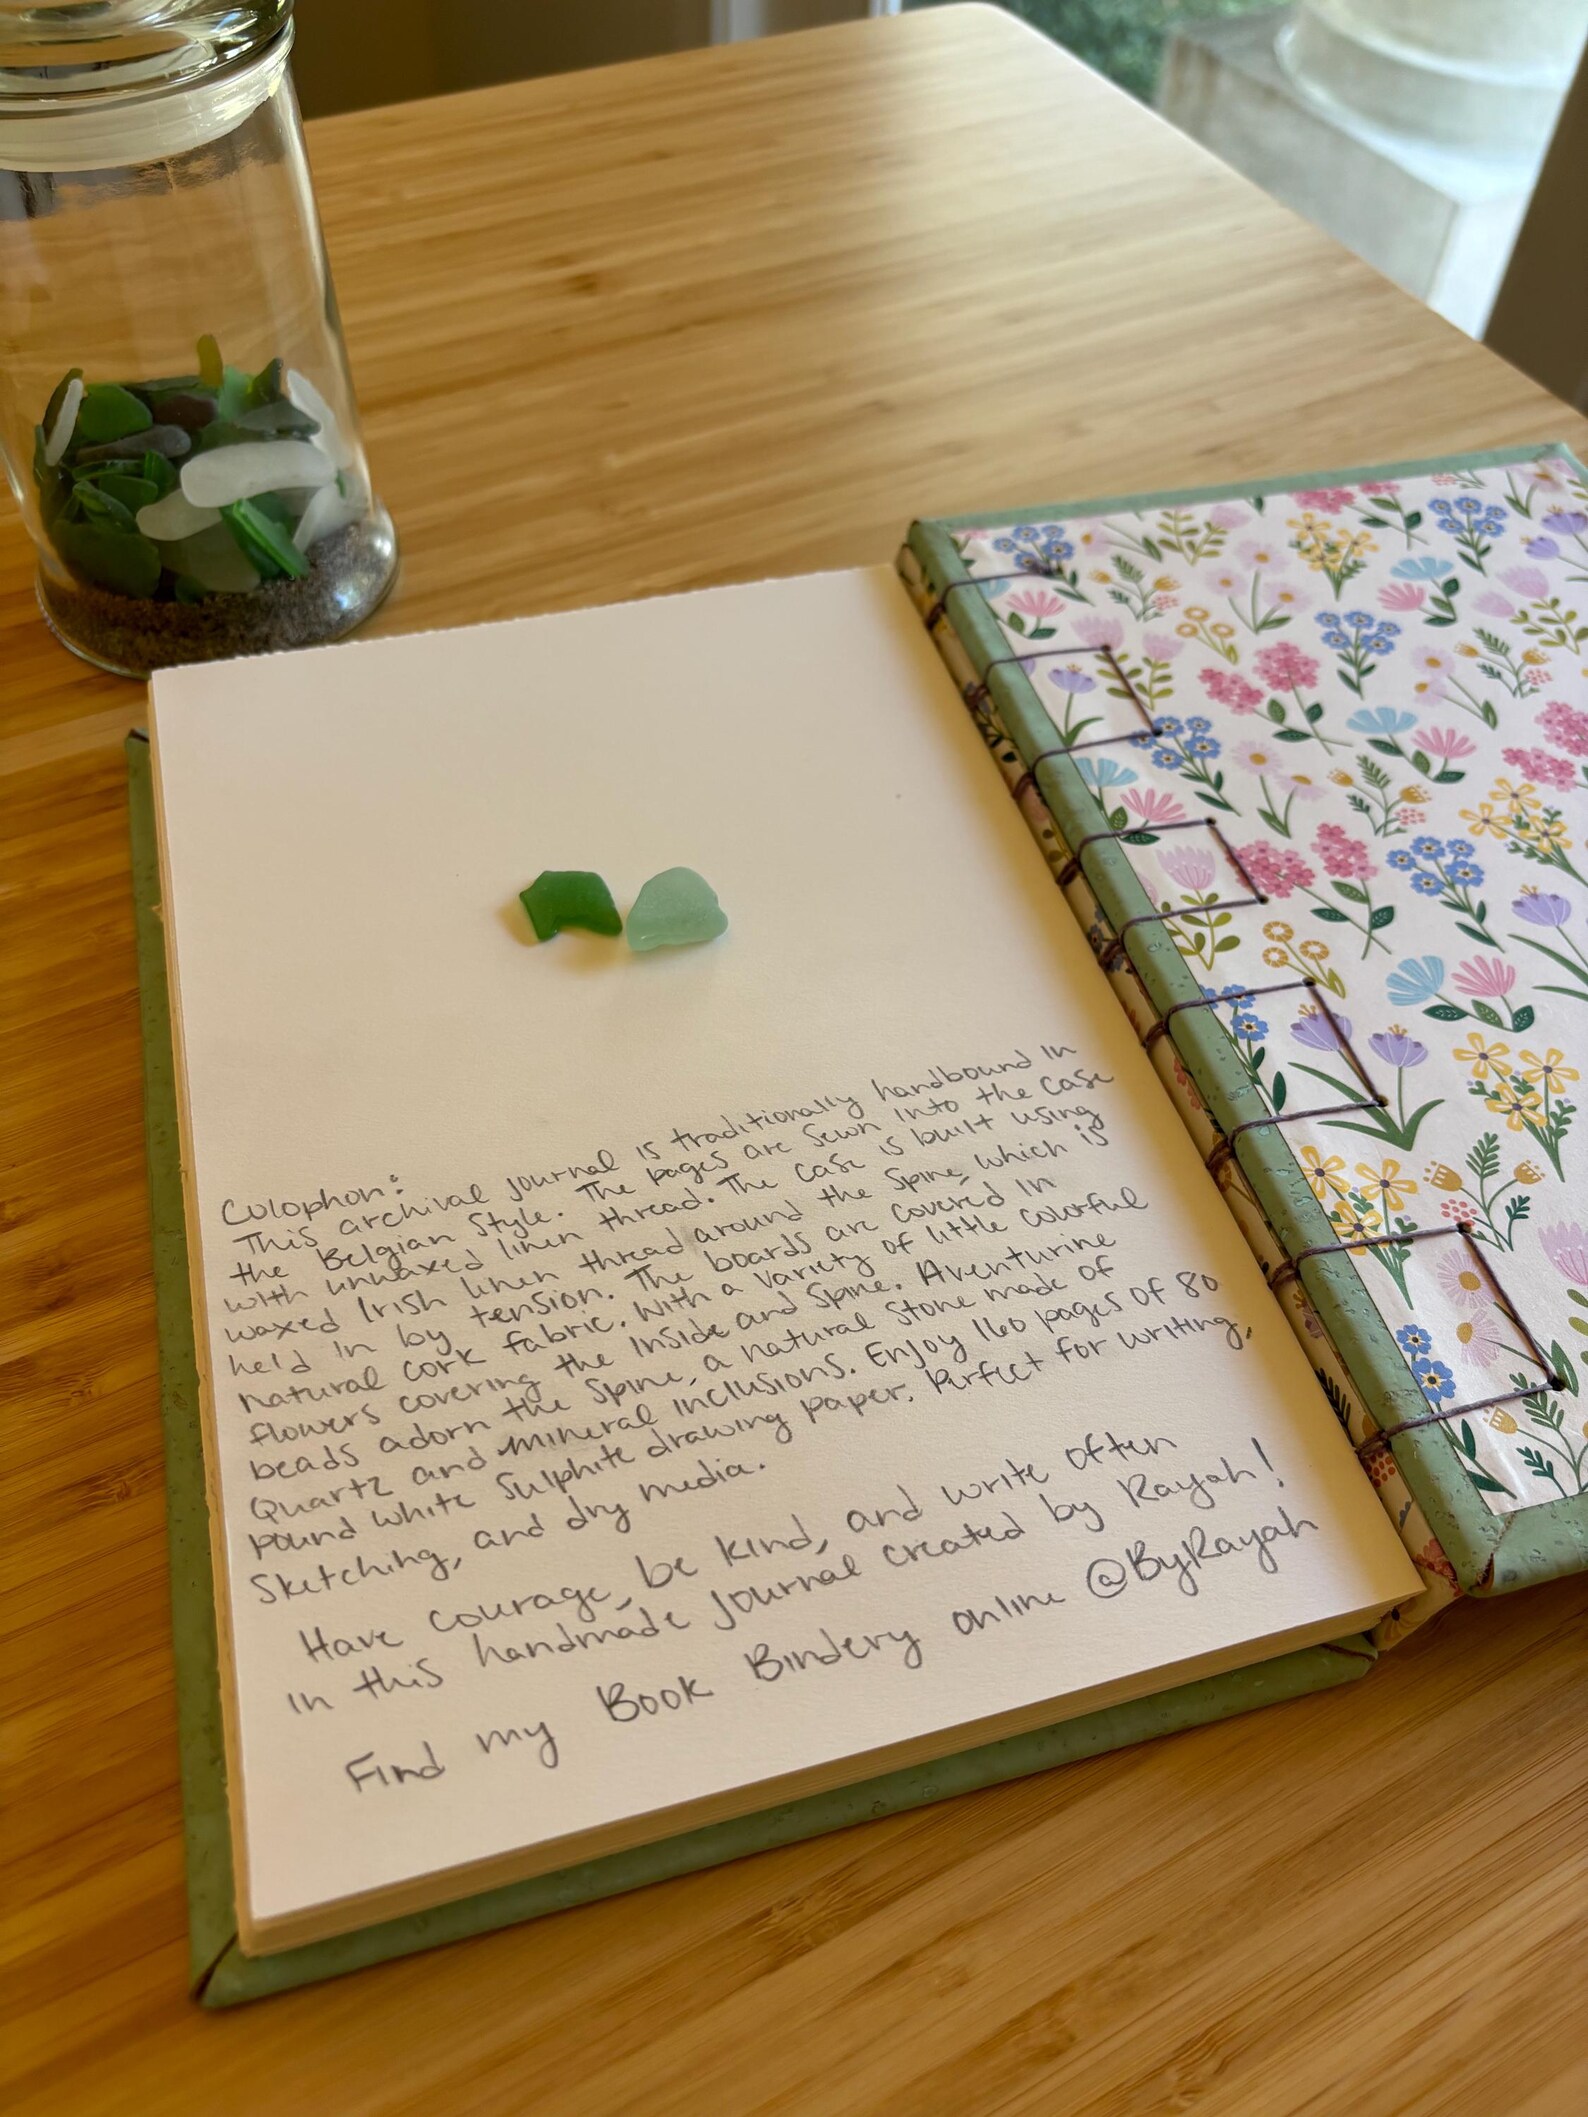 Colophon:
This archival journal is traditionally handbound in
the Belgian Style. The pages are sewn into the case
with unwaxed linen thread. The case is built using
waxed Irish linen thread around the spine, which is
held in by tension. The boards are covered in
natural cork fabric. With a variety of little colorful
flowers covering the inside and spine. Aventurine
beads adorn the spine, a natural stone made of
Quartz and mineral inclusions. Enjoy 160 pages of 80
pound white sulphite drawing paper. Perfect for writing,
Sketching, and dry media.
Have courage, be kind, and write often
in this handmade journal created by Rayah!
Find my Book Bindery online @ByRayah